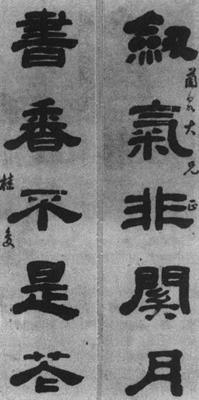 釼氣非關月
蘭泉大兄正
書香不是花
桂馥